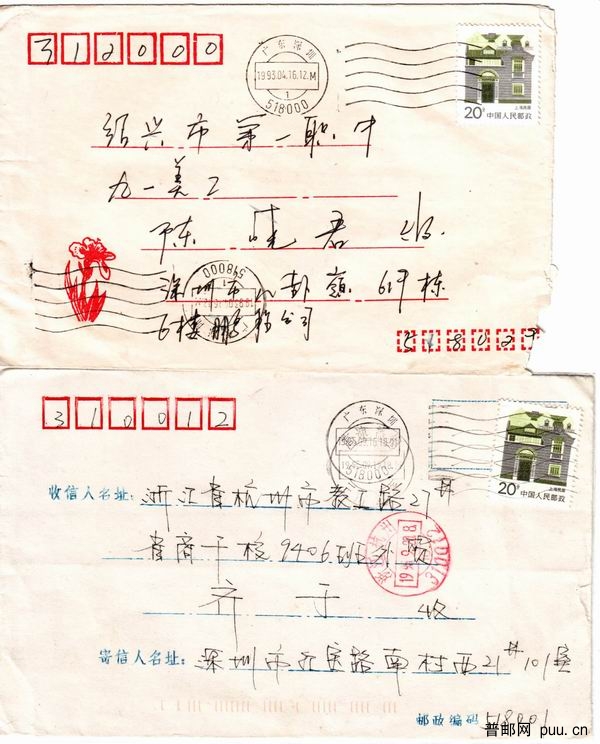 312000
广东深圳
1993.04.16.12.M
1
518000
上海民居
20分 中国人民邮政
绍兴市第一职中
九一美工
陈晓君 收
518000
深圳市八卦岭619栋
6楼鹏
公司
310012
广东深圳
518004
上海民居
20分 中国人民邮政
收信人名址: 浙江省杭州市教工路27#
省商干校9406班
310012
齐于 收
寄信人名址: 深圳市
路南村西21#101室
邮政编码 518001
普邮网 puu.cn